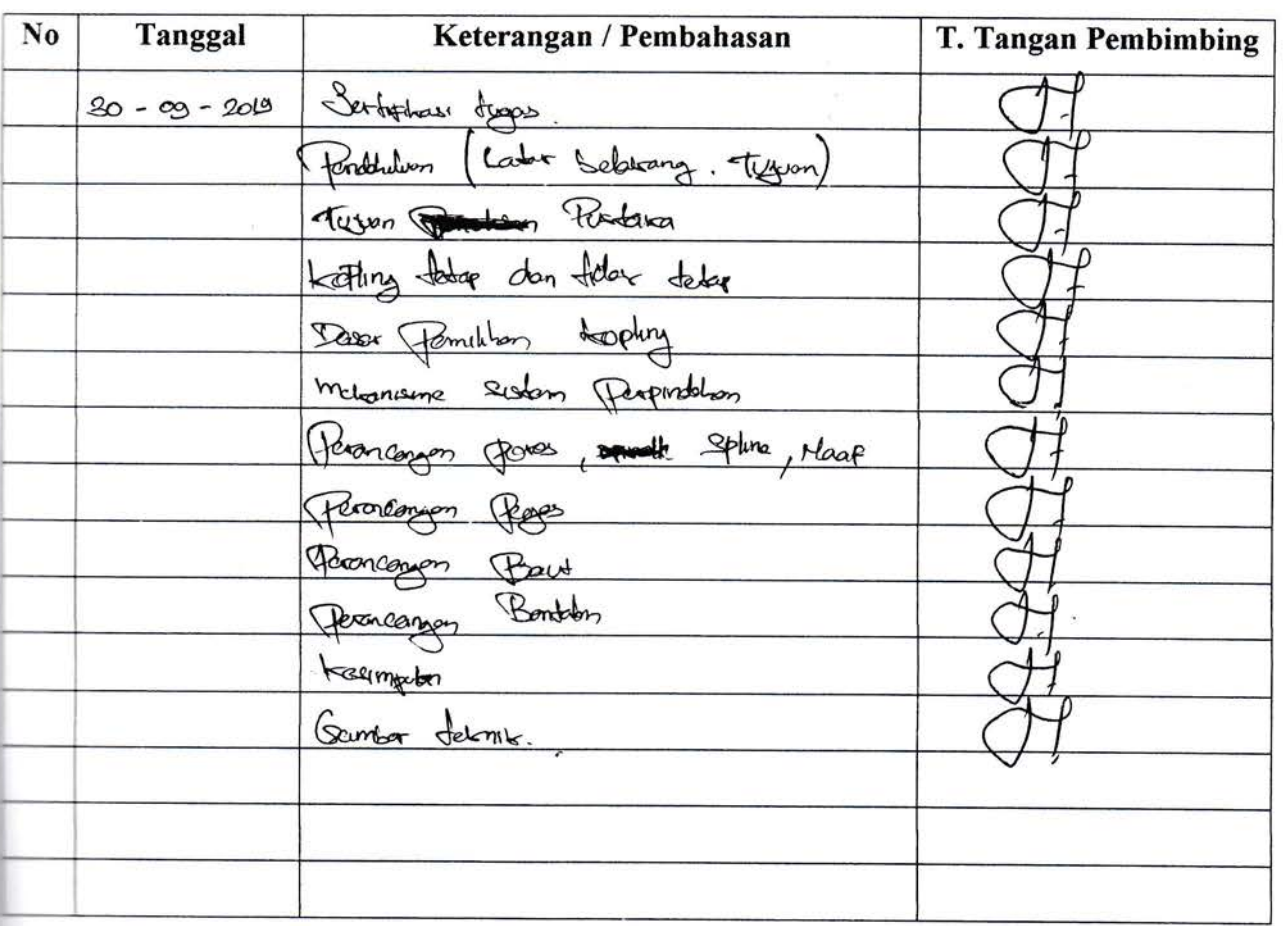 No Tanggal Keterangan / Pembahasan T. Tangan Pembimbing
30 - 09 - 2019 Sertifikasi tugas.
Pendahuluan (Latar belakang. Tujuan)
Tujuan Pustaka
Kopling tetap dan tidak tetap
Dasar Pemilihan kopling
mekanisme sistem Perpindahan
Perancangan poros, Spline, Naaf
Perancangan Pegas
Perancangan Baut
Perancangan Bantalan
Kesimpulan
Gambar teknik.